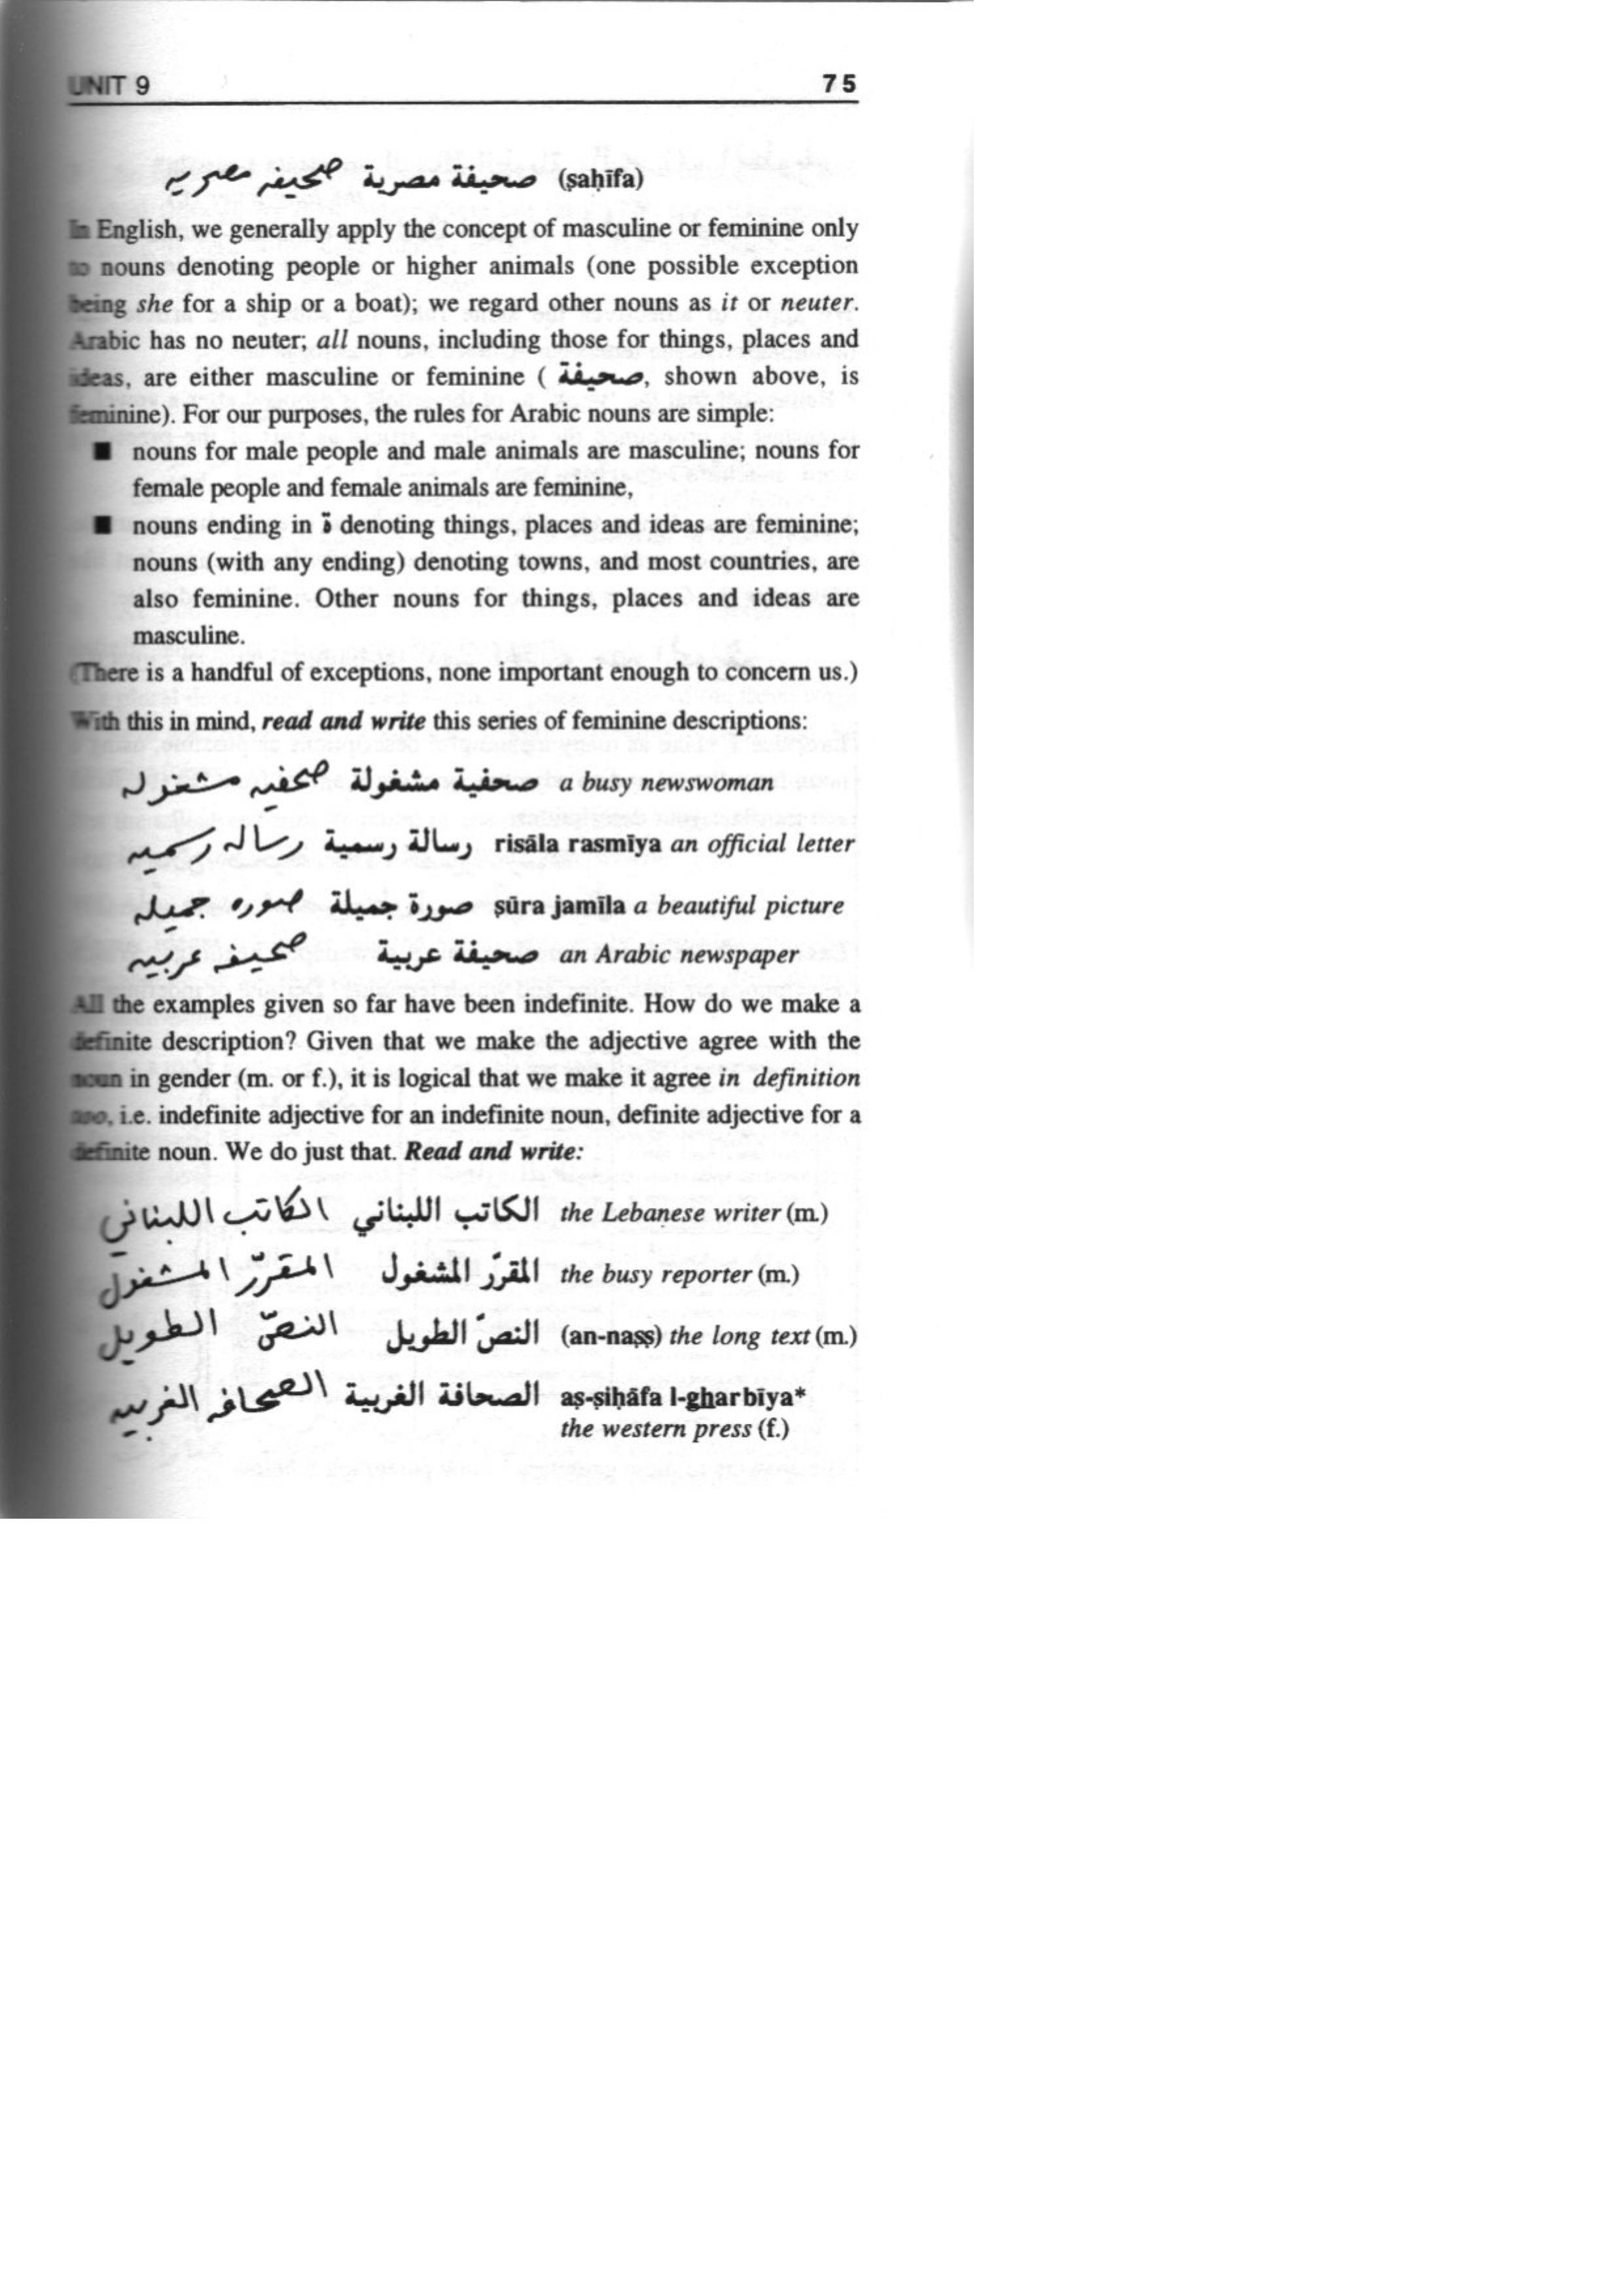 UNIT 9 75
صحيفة مصرية صحيفه مصريه (ṣaḥīfa)
In English, we generally apply the concept of masculine or feminine only
to nouns denoting people or higher animals (one possible exception
being she for a ship or a boat); we regard other nouns as it or neuter.
Arabic has no neuter; all nouns, including those for things, places and
ideas, are either masculine or feminine ( صحيفة, shown above, is
feminine). For our purposes, the rules for Arabic nouns are simple:
■ nouns for male people and male animals are masculine; nouns for
female people and female animals are feminine,
■ nouns ending in ة denoting things, places and ideas are feminine;
nouns (with any ending) denoting towns, and most countries, are
also feminine. Other nouns for things, places and ideas are
masculine.
(There is a handful of exceptions, none important enough to concern us.)
With this in mind, read and write this series of feminine descriptions:
صحفية مشغولة صحفيه مشغوله a busy newswoman
رسالة رسمية رساله رسميه risāla rasmīya an official letter
صورة جميلة صوره جميله ṣūra jamīla a beautiful picture
صحيفة عربية صحيفه عربيه an Arabic newspaper
All the examples given so far have been indefinite. How do we make a
definite description? Given that we make the adjective agree with the
noun in gender (m. or f.), it is logical that we make it agree in definition
too, i.e. indefinite adjective for an indefinite noun, definite adjective for a
definite noun. We do just that. Read and write:
الكاتب اللبناني الكاتب اللبناني the Lebanese writer (m.)
المقرّر المشغول المقرّر المشغول the busy reporter (m.)
النصّ الطويل النصّ الطويل (an-naṣṣ) the long text (m.)
الصحافة الغربية الصحافه الغربيه aṣ-ṣiḥāfa l-gharbīya*
the western press (f.)